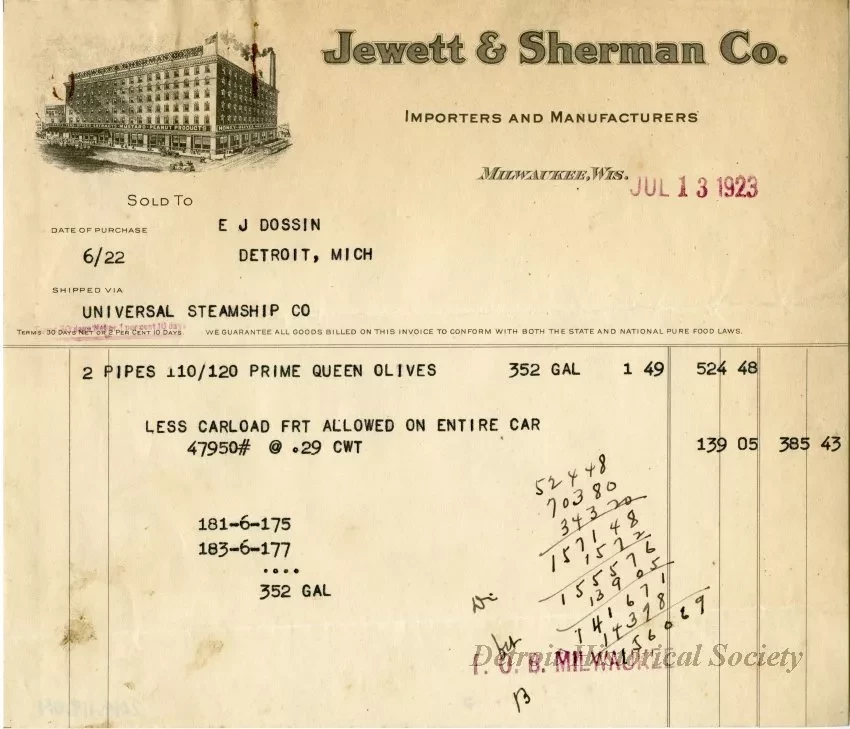 JEWETT & SHERMAN CO.
MUSTARD PEANUT PRODUCTS
HONEY
Jewett & Sherman Co.
IMPORTERS AND MANUFACTURERS
MILWAUKEE, WIS. JUL 13 1923
SOLD TO
DATE OF PURCHASE
E J DOSSIN
6/22
DETROIT, MICH
SHIPPED VIA
UNIVERSAL STEAMSHIP CO
TERMS: 30 DAYS NET OR 2 PER CENT 10 DAYS. WE GUARANTEE ALL GOODS BILLED ON THIS INVOICE TO CONFORM WITH BOTH THE STATE AND NATIONAL PURE FOOD LAWS.
2 PIPES 110/120 PRIME QUEEN OLIVES 352 GAL 1 49 524 48
LESS CARLOAD FRT ALLOWED ON ENTIRE CAR
47950# @ .29 CWT 139 05 385 43
52448
70380
34320
157148
1572
181-6-175
183-6-177
....
352 GAL
155576
13905
141671
14378
156069
F. O. B. MILWAUKEE
Detroit Historical Society
B